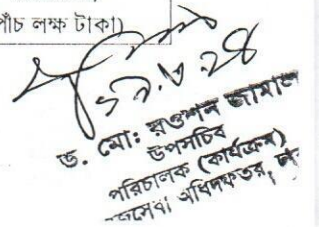 পাঁচ লক্ষ টাকা)
ড. মো: রওশন জামাল
উপসচিব
পরিচালক (কার্যক্রম)
অধিদফতর,